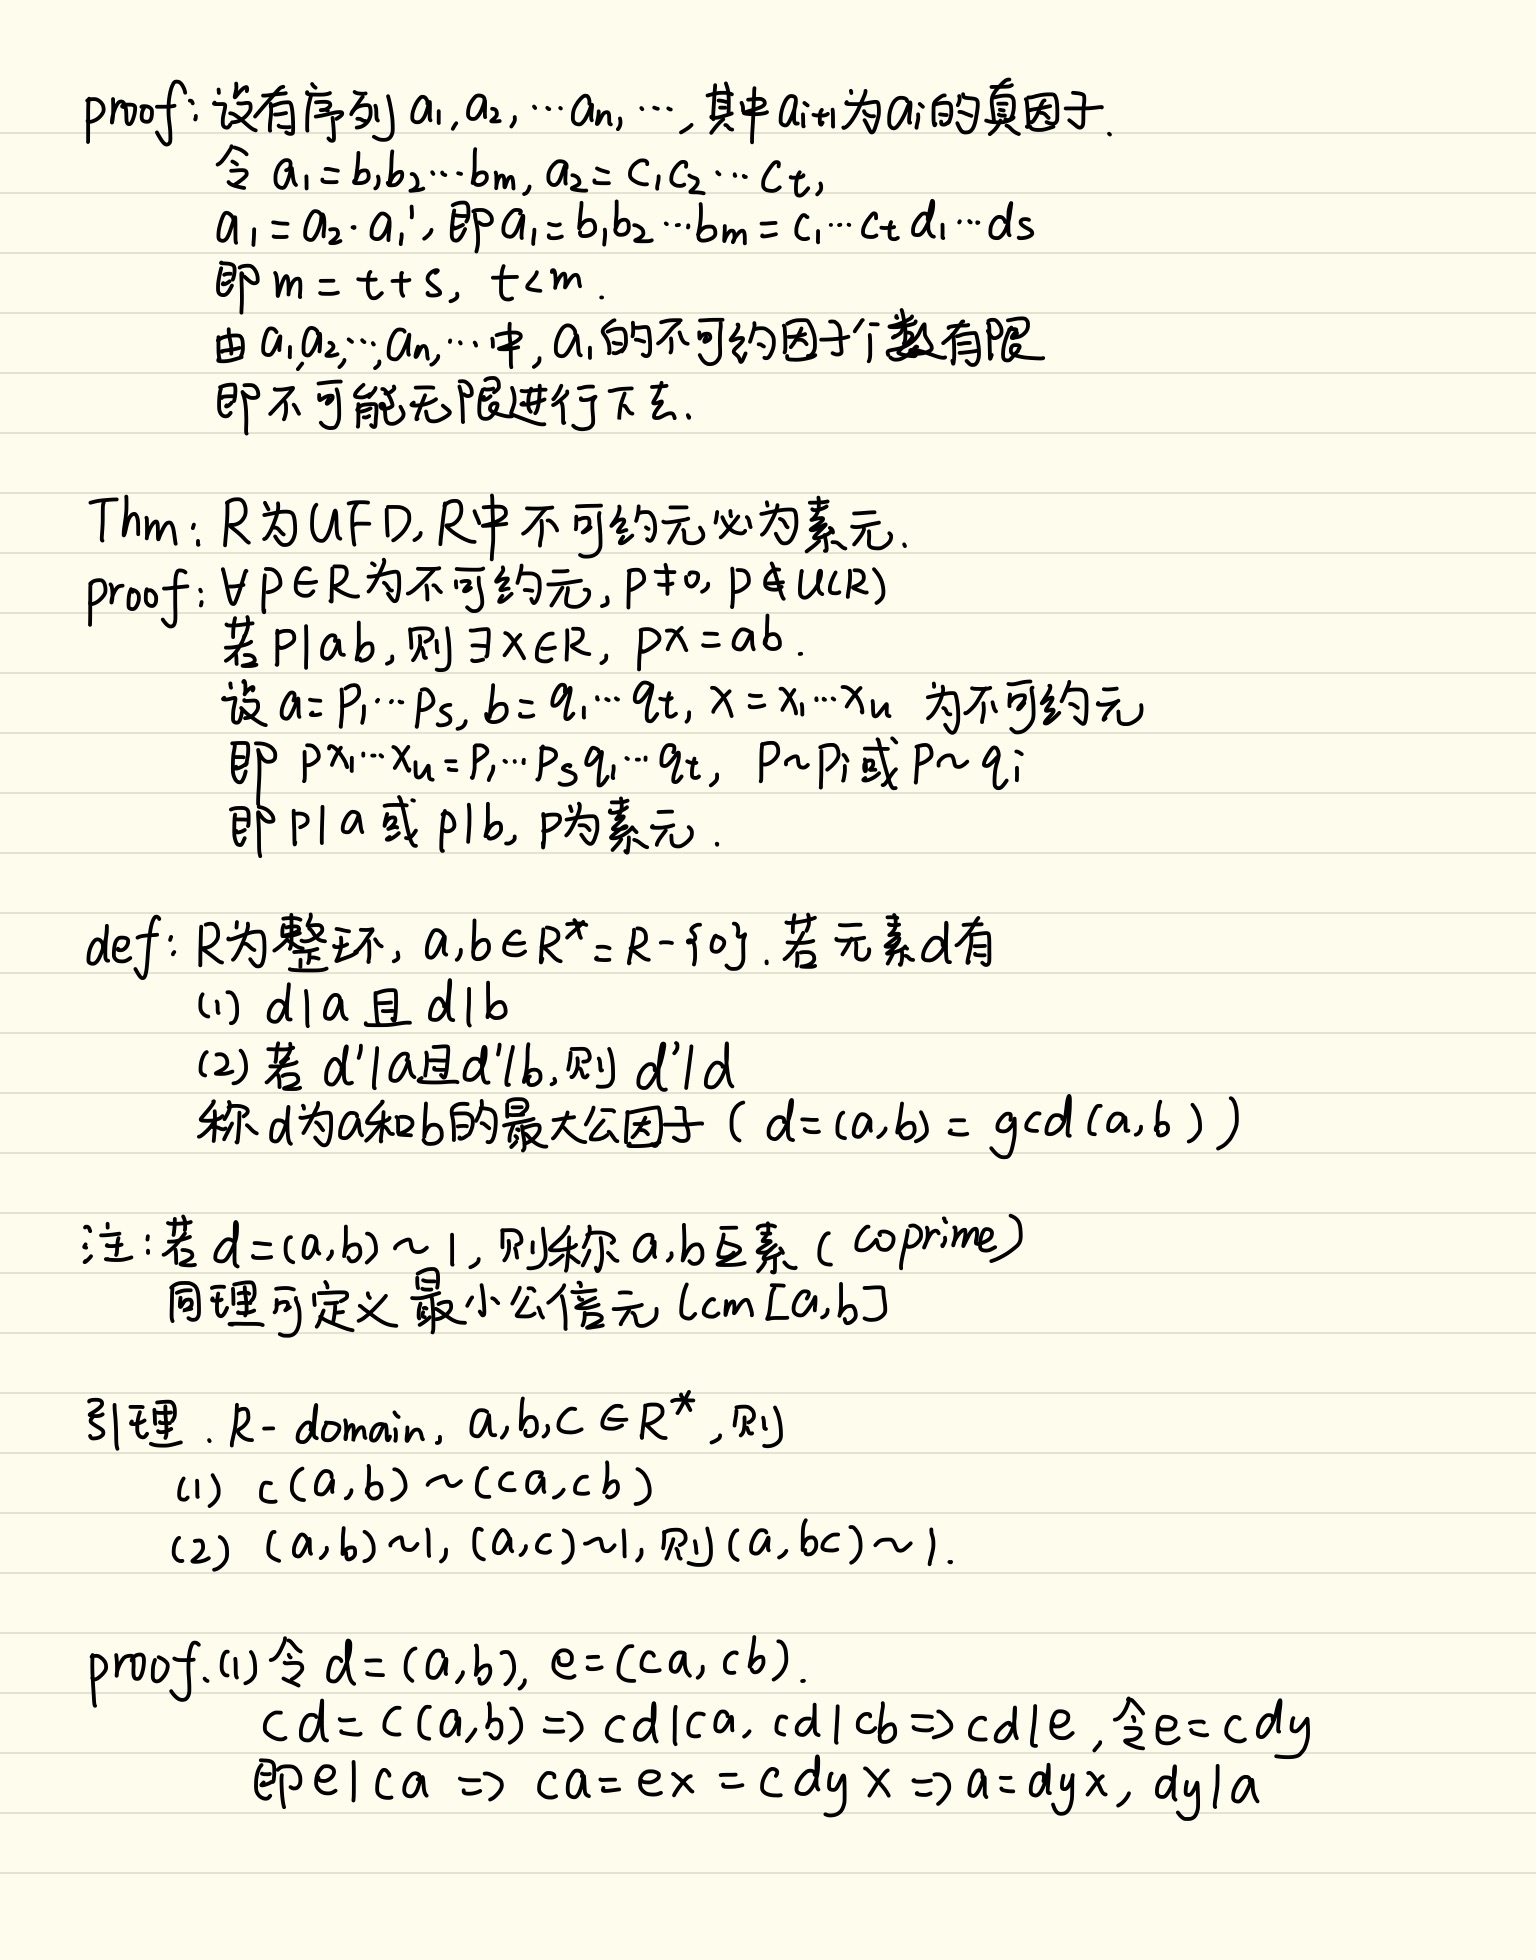 proof: 设有序列 a₁, a₂, ⋯ aₙ, ⋯, 其中 aᵢ₊₁为aᵢ的真因子.
令 a₁ = b₁b₂⋯bₘ, a₂ = c₁c₂⋯cₜ,
a₁ = a₂·a₁', 即 a₁ = b₁b₂⋯bₘ = c₁⋯cₜ d₁⋯dₛ
即 m = t+s, t<m.
由 a₁,a₂,⋯,aₙ,⋯中, a₁的不可约因子个数有限
即不可能无限进行下去.
Thm: R为UFD, R中不可约元必为素元.
proof: ∀p∈R为不可约元, p≠0, p∉U(R)
若 p|ab, 则∃x∈R, px=ab.
设 a=p₁⋯pₛ, b=q₁⋯qₜ, x=x₁⋯xᵤ 为不可约元
即 px₁⋯xᵤ=p₁⋯pₛq₁⋯qₜ, p~pᵢ或p~qᵢ
即 p|a 或 p|b, p为素元.
def: R为整环, a,b∈R*=R-{0}. 若元素d有
(1) d|a 且 d|b
(2) 若 d'|a且d'|b, 则 d'|d
称d为a和b的最大公因子 ( d=(a,b) = gcd(a,b) )
注: 若 d=(a,b)~1, 则称 a,b互素 (coprime)
同理可定义最小公倍元 lcm[a,b]
引理. R-domain, a,b,c∈R*, 则
(1) c(a,b)~(ca,cb)
(2) (a,b)~1, (a,c)~1, 则(a,bc)~1.
proof.(1) 令 d=(a,b), e=(ca,cb).
cd=c(a,b) => cd|ca, cd|cb => cd|e, 令e=cdy
即 e|ca => ca=ex=cdyx => a=dyx, dy|a